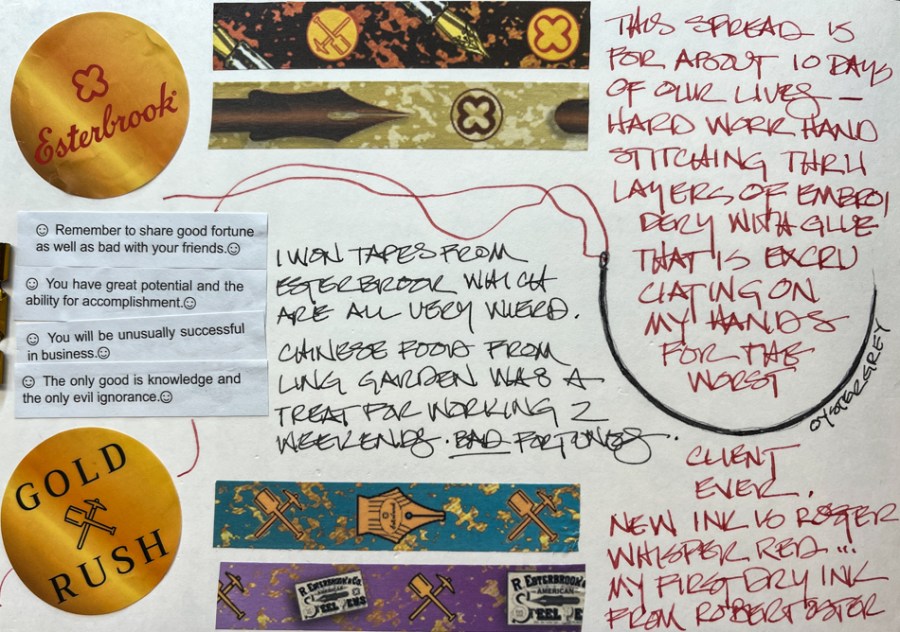 Esterbrook
☺ Remember to share good fortune
as well as bad with your friends.☺
☺ You have great potential and the
ability for accomplishment.☺
☺ You will be unusually successful
in business.☺
☺ The only good is knowledge and
the only evil ignorance.☺
GOLD
RUSH
I WON TAPES FROM
ESTERBROOK WHICH
ARE ALL VERY WIERD.
CHINESE FOOD FROM
LING GARDEN WAS A
TREAT FOR WORKING 2
WEEKENDS. BAD FORTUNES.
R. ESTERBROOK & CO.
AMERICAN
STEEL PENS
R. ESTERBROOK & CO.
AMERICAN
STEEL PENS
THIS SPREAD IS
FOR ABOUT 10 DAYS
OF OUR LIVES —
HARD WORK HAND
STITCHING THRU
LAYERS OF EMBROI
DERY WITH GLUE
THAT IS EXCRU
CIATING ON
MY HANDS
FOR THE
WORST
OYSTER GREY
CLIENT
EVER.
NEW INK IS ROSTER
WHISPER RED...
MY FIRST DRY INK
FROM ROBERT OSTER